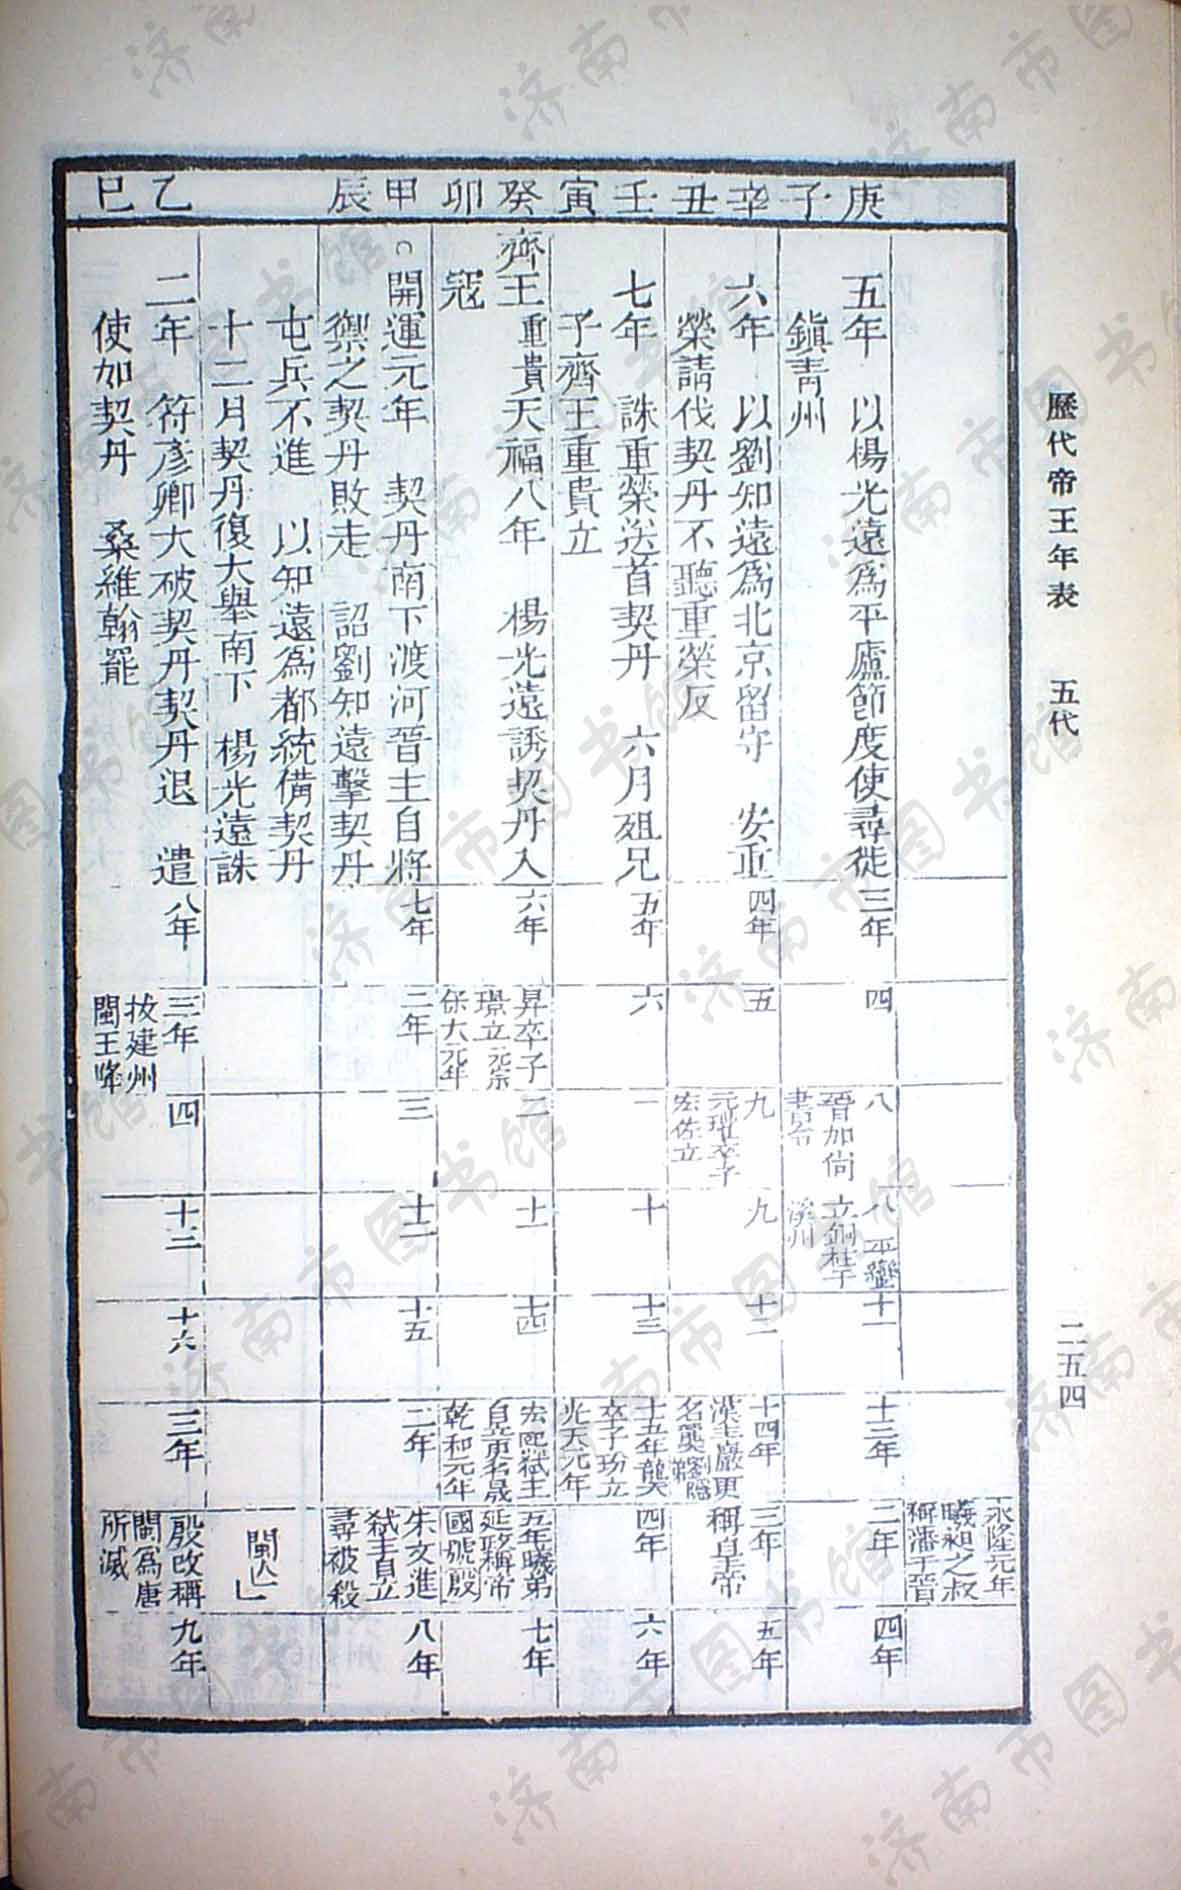 歷代帝王年表　五代
二五四
庚子　辛丑　壬寅　癸卯　甲辰　乙巳
永隆元年
曦昶之叔
稱藩于晉
五年　以楊光遠爲平盧節度使尋徙
鎭青州
三年
四
八
晉加尙
書令
八　平蠻
立銅柱于
溪州
十一
十三年
二年
四年
六年　以劉知遠爲北京留守　安重
榮請伐契丹不聽重榮反
四年
五
九
元瓘卒子
宏佐立
九
十二
十四年
漢主巖更
名龑
三年
稱皇帝
五年
七年　誅重榮送首契丹　六月殂兄
子齊王重貴立
五年
六
一
十
十三
十五年龑
卒子玢立
光天元年
四年
六年
齊王重貴天福八年　楊光遠誘契丹入
寇
六年
昇卒子
璟立元宗
保大元年
二
十一
十四
宏熙弒主
自立更名晟
乾和元年
五年曦弟
延政稱帝
國號殷
七年
○開運元年　契丹南下渡河晉主自將
禦之契丹敗走　詔劉知遠擊契丹
屯兵不進　以知遠爲都統備契丹
十二月契丹復大舉南下　楊光遠誅
七年
二年
三
十二
十五
二年
朱文進
弒主自立
尋被殺
閩亡
八年
二年　符彥卿大破契丹契丹退　遣
使如契丹　桑維翰罷
八年
三年
拔建州
閩王降
四
十三
十六
三年
殷改稱
閩爲唐
所滅
九年
济南市图书馆